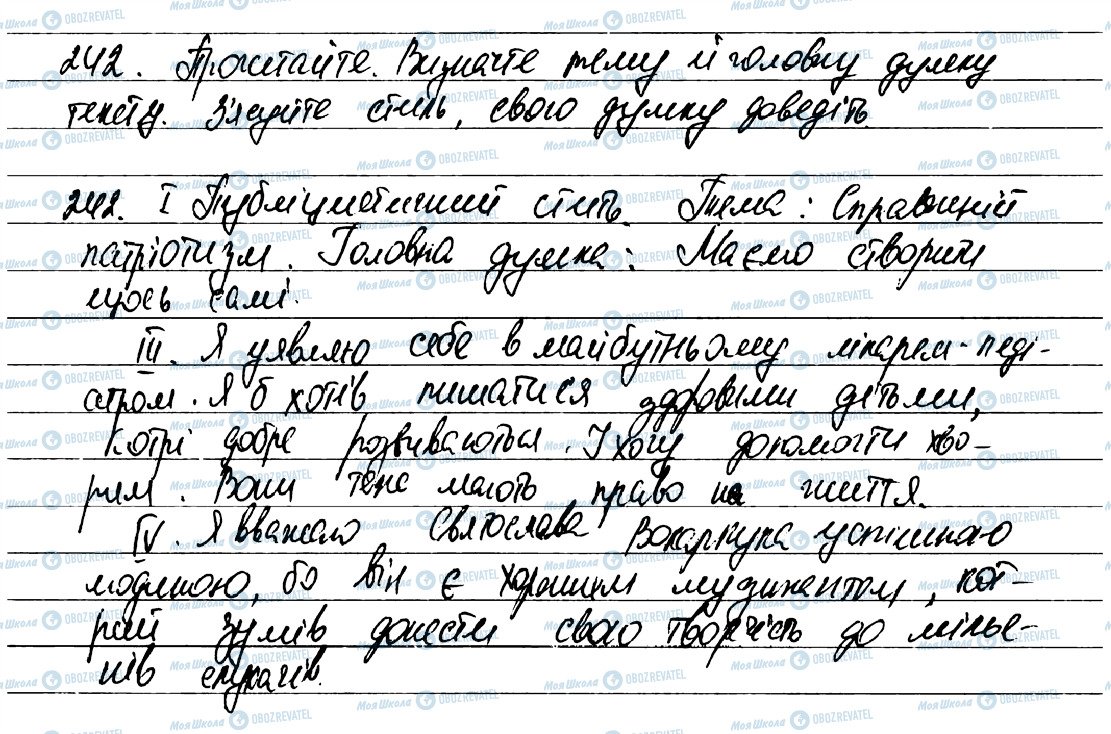 242. Прочитайте. Визначте тему й головну думку
тексту. З'ясуйте стиль, свою думку доведіть.
242. І Публіцистичний стиль. Тема: Справжній
патріотизм. Головна думка: Маємо створити
щось самі.
ІІІ. Я уявляю себе в майбутньому лікарем-педі-
атром. Я б хотів пишатися здоровими дітьми,
котрі добре розвиваються. І хочу допомогти хво-
рим. Вони теж мають право на життя.
IV. Я вважаю Святослава Вакарчука успішною
людиною, бо він є хорошим музикантом, кот-
рий зумів донести свою творчість до мільйо-
нів слухачів.